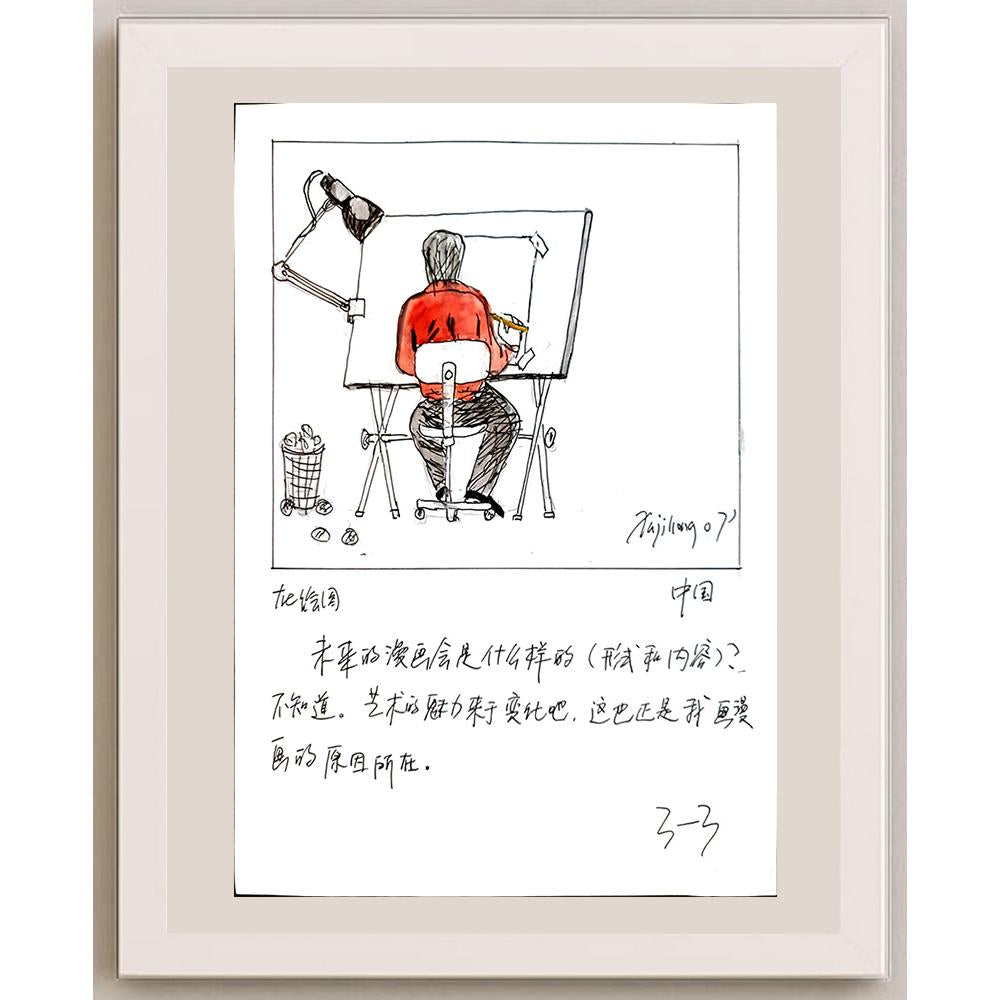 07'
绘图 中国
未来的漫画会是什么样的（形式和内容）？
不知道。艺术的魅力来于变化吧，这也正是我画漫
画的原因所在。
3-3